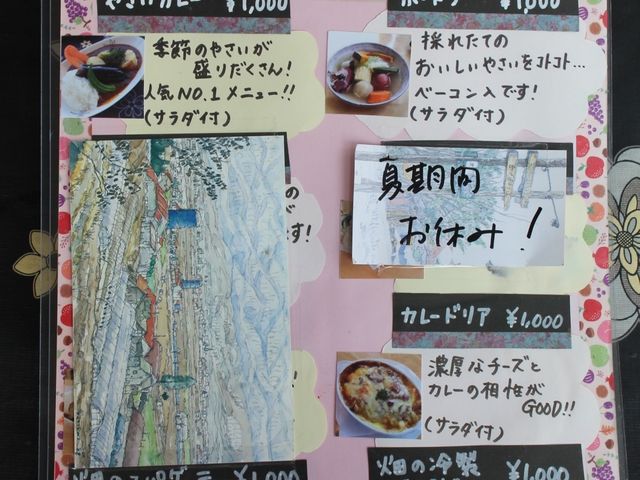 やさいカレー ¥1,000
季節のやさいが
盛りだくさん!
人気NO.1メニュー!!
(サラダ付)
¥1,000
採れたての
おいしいやさいをコトコト…
ベーコン入です!
(サラダ付)
夏期間
お休み!
カレードリア ¥1,000
濃厚なチーズと
カレーの相性が
GOOD!!
(サラダ付)
¥1,000
畑の冷製
¥1,000